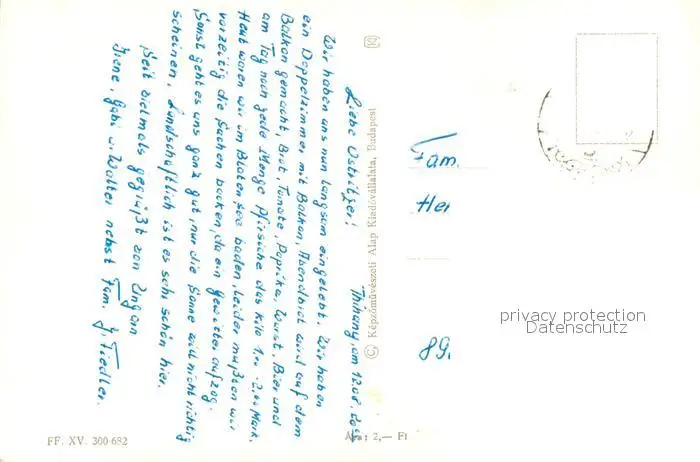 Thihany, am 12.08.
Liebe Ostritzer!
Wir haben uns nun langsam eingelebt. Wir haben
ein Doppelzimmer mit Balkon, Abendbrot wird auf dem
Balkon gemacht, Brot, Tomate, Paprika, Wurst, Bier und
am Tag noch jede Menge Pfirsiche das Kilo 1.- 2,00 Mark.
Heut waren wir im Blatensee baden, leider mußten wir
vorzeitig die Sachen packen, da ein Gewitter aufzog.
Sonst geht es uns ganz gut, nur die Sonne will nicht richtig
scheinen. Landschaftlich ist es sehr schön hier.
Seit vielmals gegrüßt von Ungarn
Irene, Gabi u. Walter nebst Fam. J. Fiedler.
© Képzőművészeti Alap Kiadóvállalata, Budapest
Fam.
Her
89
privacy protection
Datenschutz
FF. XV. 300-682
Ára: 2,— Ft